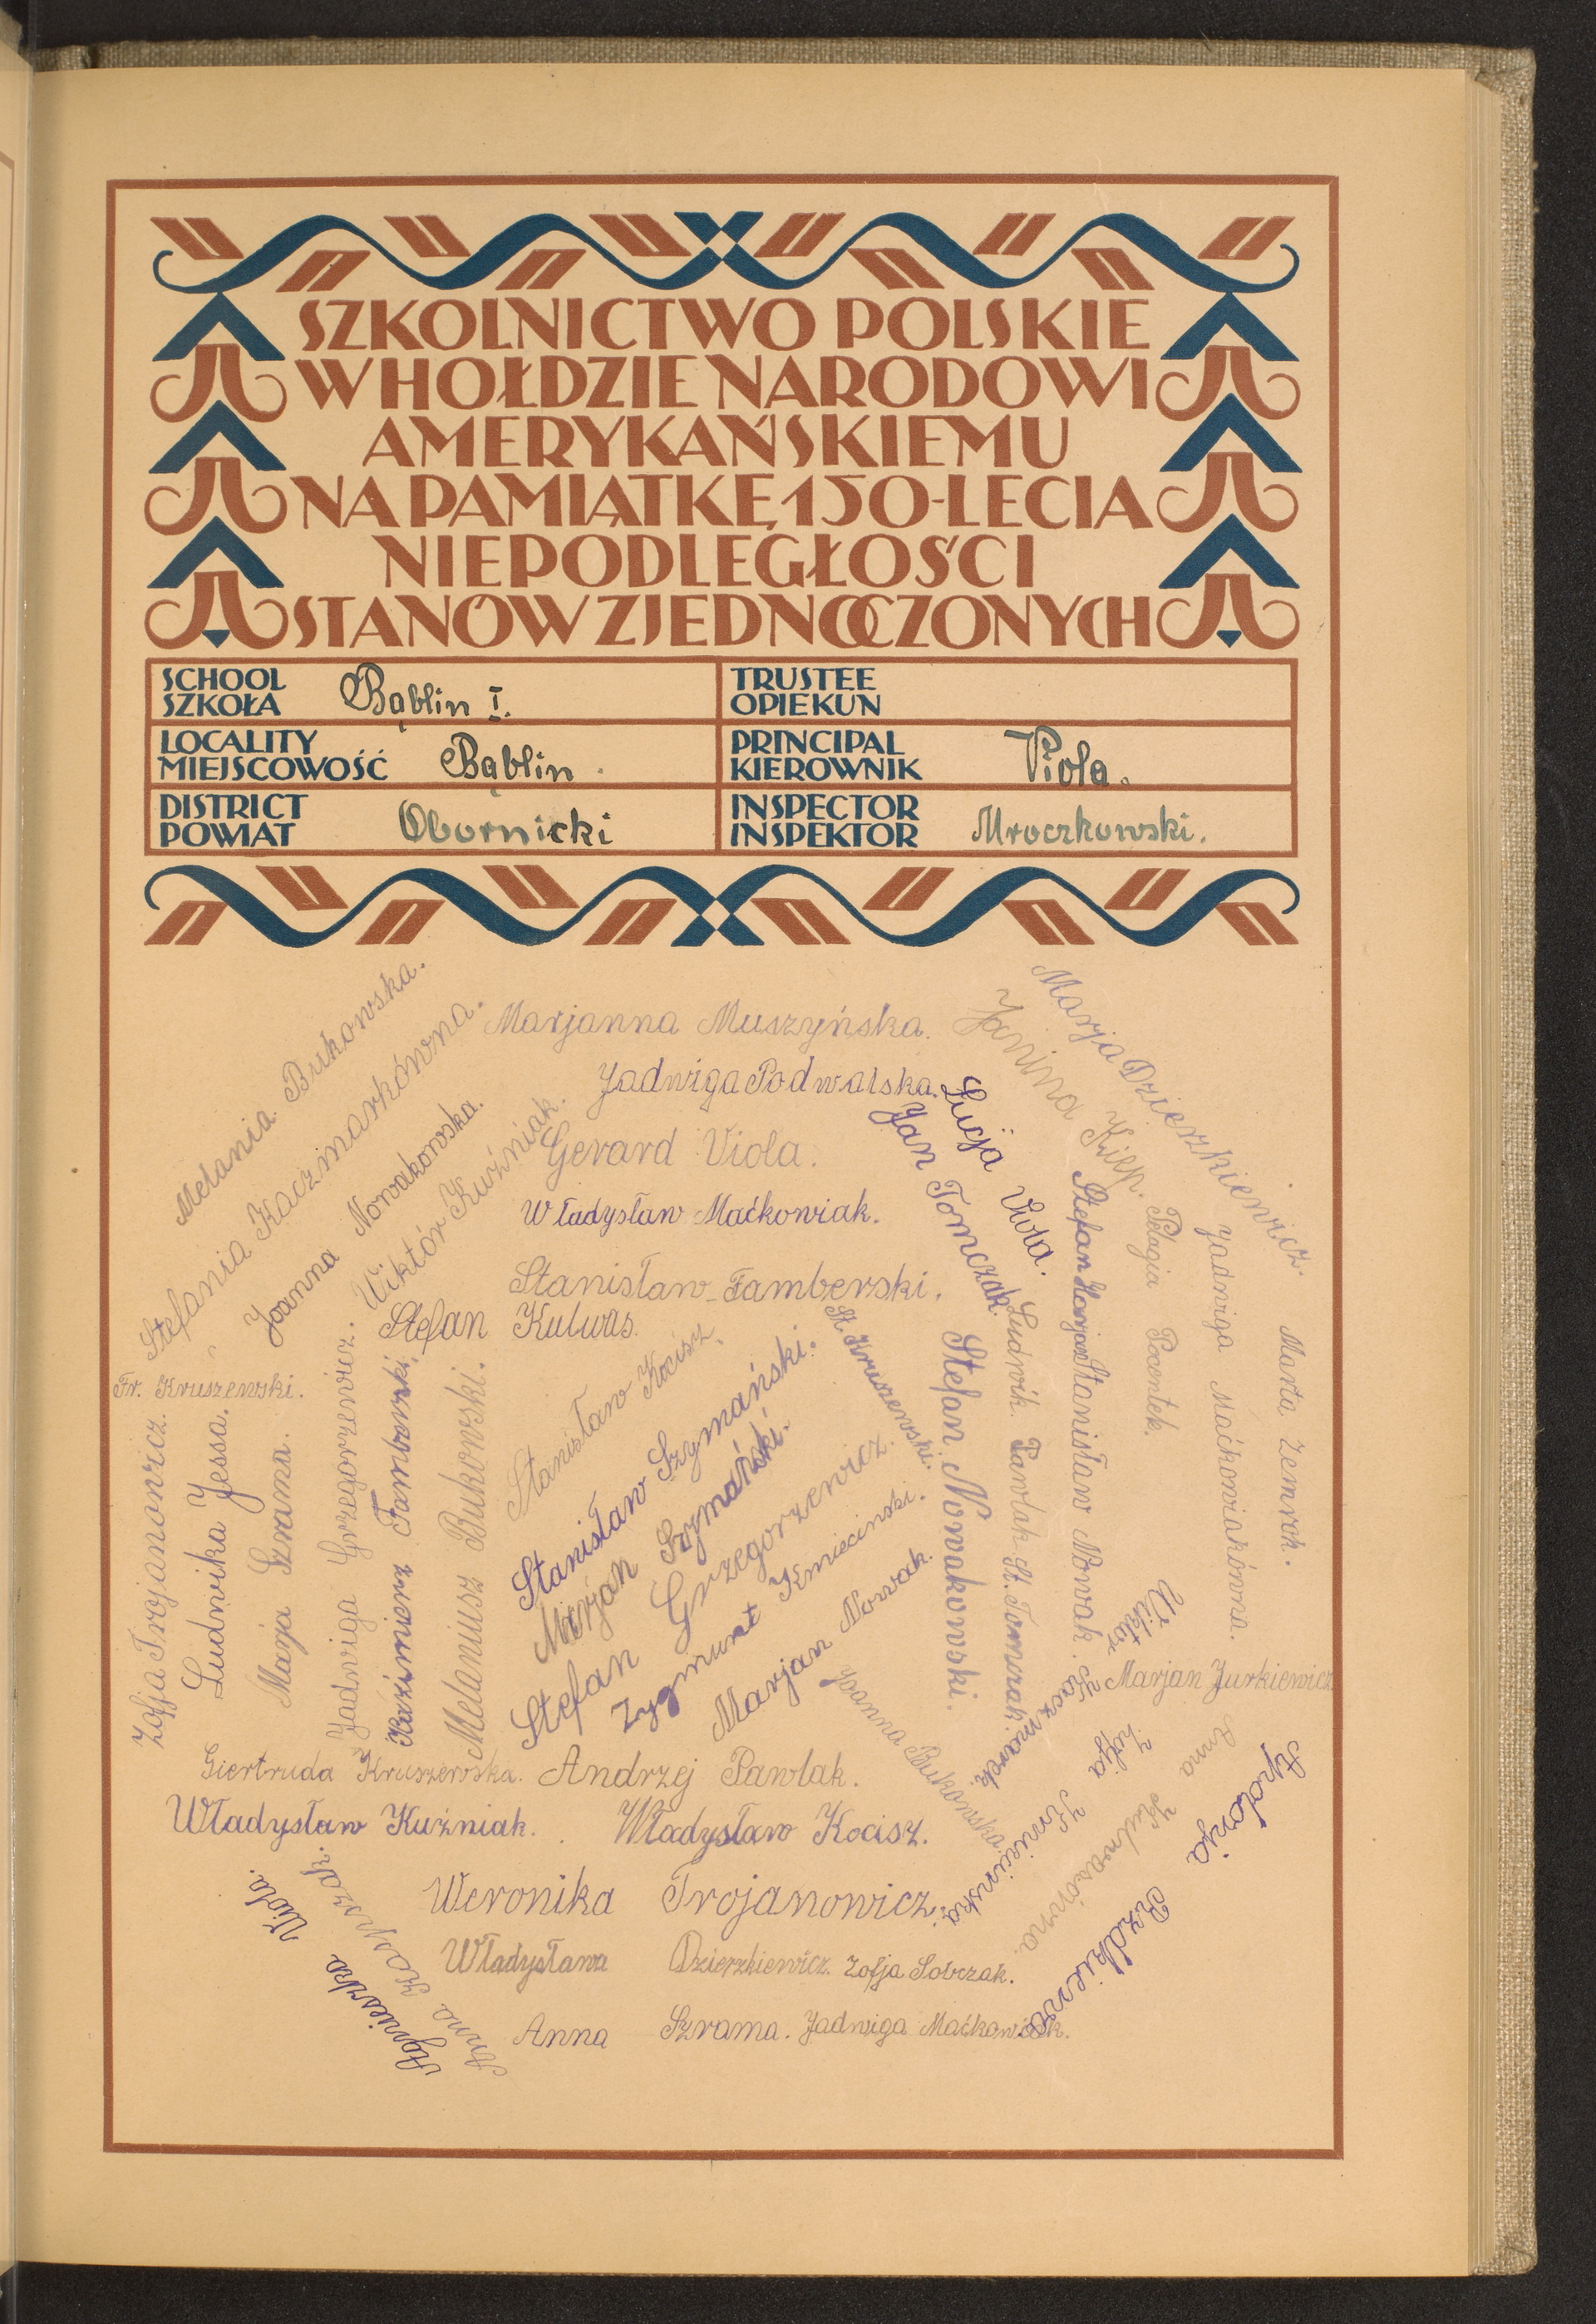 SZKOLNICTWO POLSKIE
W HOŁDZIE NARODOWI
AMERYKAŃSKIEMU
NA PAMIĄTKĘ 150-LECIA
NIEPODLEGŁOŚCI
STANÓW ZJEDNOCZONYCH
SCHOOL
SZKOŁA
Bąblin I.
TRUSTEE
OPIEKUN
LOCALITY
MIEJSCOWOŚĆ
Bąblin.
PRINCIPAL
KIEROWNIK
Viola.
DISTRICT
POWIAT
Obornicki
INSPECTOR
INSPEKTOR
Mroczkowski.
Melania Bukowska.
Stefania Kaczmarkówna.
Joanna Nowakowska.
Wiktór Kuźniak.
Marjanna Muszyńska.
Jadwiga Podwalska.
Gerard Viola.
Władysław Maćkowiak.
Stanisław Famberski.
Stefan Kulwas.
Marja Dzierzkiewicz.
Janina Kiep.
Łucja Viola.
Jan Tomczak.
Fr. Kruszewski.
Zofja Trojanowicz.
Ludwika Jessa.
Marja Szrama.
Jadwiga Grzegorzewicz.
Kaźmierz Famberski.
Melanjusz Bukowski.
Stanisław Kocisz.
Stanisław Szymański.
Marjan Szymański.
Stefan Grzegorzewicz.
Zygmunt Kmiecinski.
Marjan Nowak.
St. Kruszewski.
Stefan Nowakowski.
Ludwik Pawlak
St. Tomczak.
Stefan
Stanisław Nowak.
Pelagia Pocentek.
Jadwiga Maćkowiakówna.
Marta Zemrak.
Wiktor Kaczmarek.
Marjan Jurkiewicz
Joanna Bukowska.
Zofja Kmiecinska.
Anna Kulwasówna.
Apolonja
Giertruda Kruszewska.
Andrzej Pawlak.
Władysław Kuźniak.
Władysław Kocisz.
Weronika Trojanowicz.
Władysława Dzierzkiewicz.
Zofja Sobczak.
Anna Szrama.
Jadwiga Maćkowiak.
Agnieszka Viola.
Anna